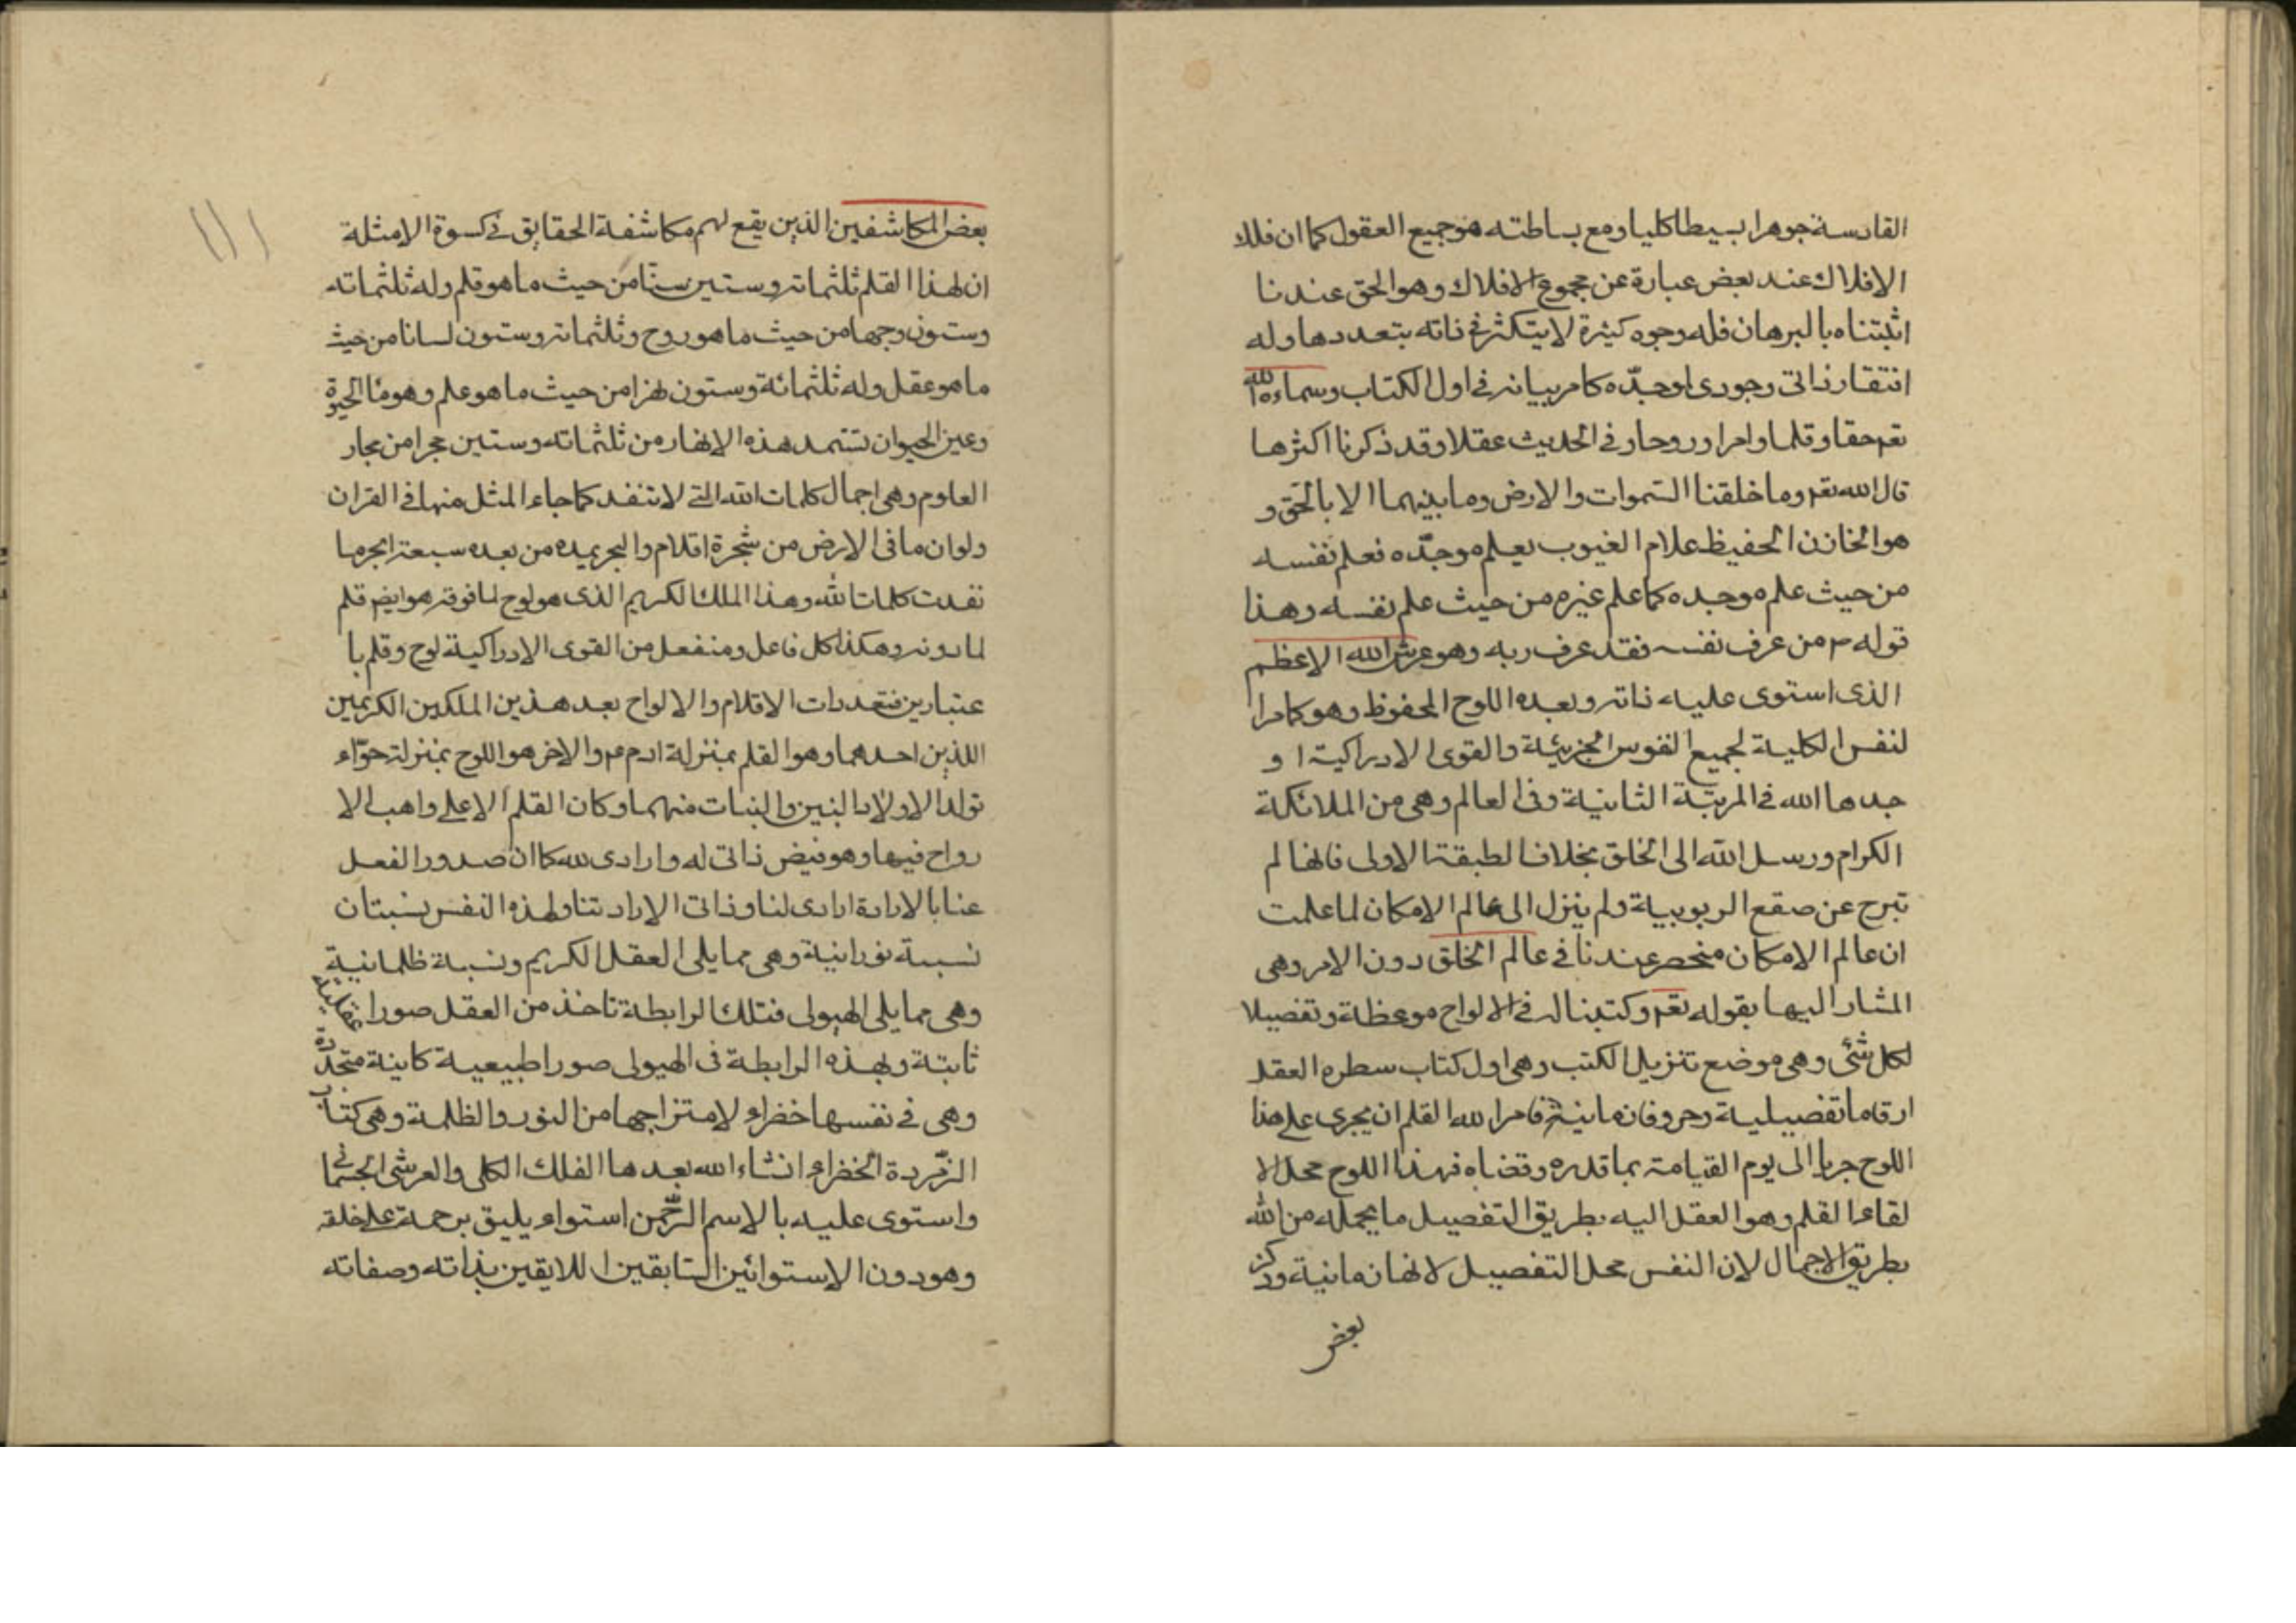 القادسة جوهرا بسيطا كليا ومع بساطته هو جميع العقول كما ان فلك
الافلاك عند بعض عبارة عن مجموع الافلاك وهو الحق عندنا
اثبتناه بالبرهان فله وجوه كثيرة لا يتكثر في ذاته بتعددها وله
افتقار ذاتى وجودى لموجدّه كامر بيانه في اول الكتاب وسماءه الله
تعم حقا وقلما وامرا وروحا وفي الحديث عقلا وقد ذكرنا اكثرها
قال الله تعم وما خلقنا السموات والارض وما بينهما الا بالحق و
هو الخازن الحفيظ علام الغيوب يعلم موجدّه فعلم نفسه
من حيث علم موجده كما علم غيره من حيث علم نفسه وهذا
قوله م من عرف نفسه فقد عرف ربه وهو عرش الله الاعظم
الذى استوى عليه ذاته وبعده اللوح المحفوظ وهو كامرا
لنفس الكلية لجميع النفوس الجزئية والقوى الادراكية ا و
جدها الله في المرتبة الثانية وفى العالم وهى من الملائكة
الكرام ورسل الله الى الخلق بخلاف الطبقة الاولى فانها لم
تبرح عن صقع الربوبية ولم ينزل الى عالم الامكان لما علمت
ان عالم الامكان منحصر عندنا في عالم الخلق دون الامر وهى
المشار اليها بقوله تعم وكتبنا له في الالواح موعظة وتفصيلا
لكل شئى وهى موضع تنزيل الكتب وهى اول كتاب سطره العقل
ارقاما تفصيلية وحروفا زمانية فامر الله القلم ان يجرى على هذا
اللوح جريا الى يوم القيامة بما قدره وقضاه فهذا اللوح محل الا
لقاء القلم وهو العقل اليه بطريق التفصيل ما يحمله من الله
بطريق الاجمال لان النفس محل التفصيل لانها زمانية وذكر
بعض
بعض المكاشفين الذين يقع لهم مكاشفة الحقايق في كسوة الامثلة
ان لهذا القلم ثلثماته وستين سنّا من حيث ما هو قلم وله ثلثماته
وستون وجها من حيث ما هو روح وثلثماته وستون لسانا من حيث
ما هو عقل وله ثلثمائة وستون نهرا من حيث ما هو علم وهو ماء الحيوة
وعين الحيوان تستمد هذه الانهار من ثلثماته وستين بحرا من بحار
العلوم وهى اجمال كلمات الله التى لا تنفد كما جاء المثل منها في القران
ولو ان ما فى الارض من شجرة اقلام والبحر يمده من بعده سبعة ابحر ما
نفدت كلمات الله وهذا الملك الكريم الذى هو لوح لما فوقه هو ايضم قلم
لما دونه وهكذا كل فاعل ومنفعل من القوى الادراكية لوح وقلم با
عتبارين فتعددات الاقلام والالواح بعد هذين الملكين الكريمين
اللذين احدهما وهو القلم بمنزلة ادم م والاخر هو اللوح بمنزلة حوّاء
تولدا الاولاد البنين والبنات منهما وكان القلم الاعلى واهب الا
رواح فيها وهو فيض ذاتى له وارادى لله كما ان صدور الفعل
عنا بالارادة ارادى لنا وذاتى الارادتنا ولهذه النفس نسبتان
نسبة نورانية وهى مما يلى العقل الكريم ونسبة ظلمانية
وهى مما يلى الهيولى فتلك الرابطة تاخذ من العقل صورا عقلية
ثابتة وبهذه الرابطة فى الهيولى صورا طبيعية كاينة متجددة
وهى في نفسها خضراء لامتزاجها من النور والظلمة وهى كتاب
الزمّردة الخضراء انشاء الله بعدها الفلك الكلى والعرش الجسمانى
واستوى عليه بالاسم الرحمن استواء يليق برحمة على خلقه
وهو دون الاستوائين السابقين اللايقين بذاته وصفاته